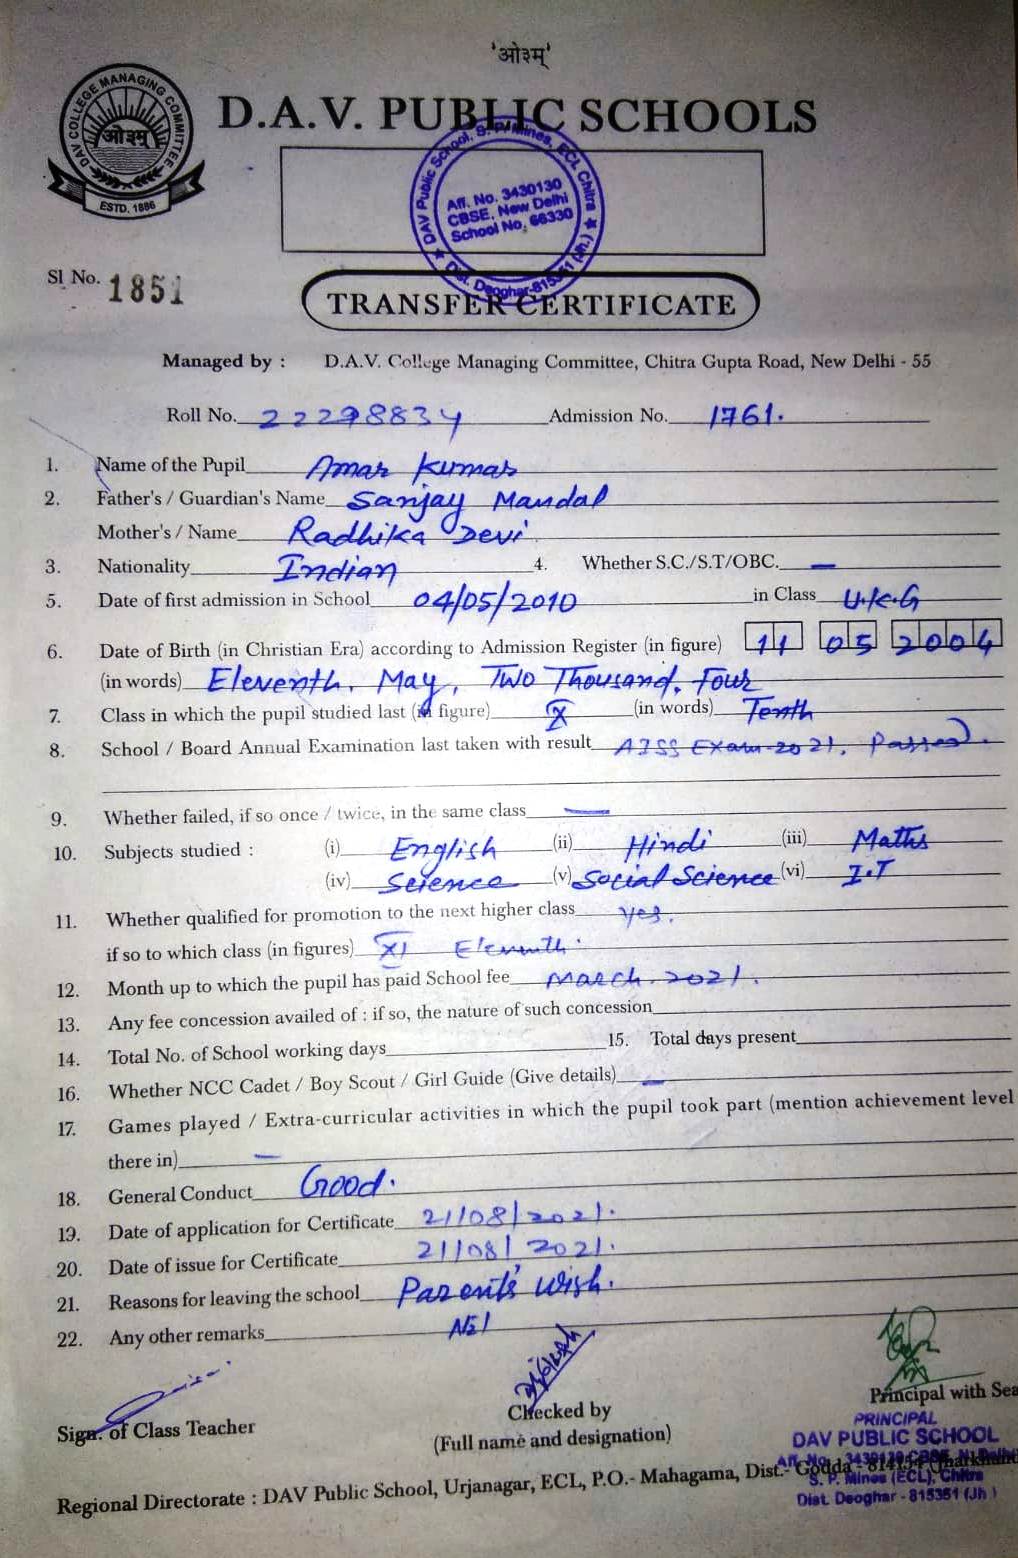 'ओ३म्'
DAV COLLEGE MANAGING COMMITTEE
ओ३म्
ESTD. 1886
D.A.V. PUBLIC SCHOOLS
DAV Public School, S. P. Mines, ECL Chitra
Aff. No. 3430130
CBSE, New Delhi
School No. 66330
Dist. Deoghar-815351 (Jh.)
Sl No. 1851
TRANSFER CERTIFICATE
Managed by : D.A.V. College Managing Committee, Chitra Gupta Road, New Delhi - 55
Roll No. 22298834 Admission No. 1761.
1. Name of the Pupil Amar Kumar
2. Father's / Guardian's Name Sanjay Mandal
Mother's / Name Radhika Devi
3. Nationality Indian 4. Whether S.C./S.T/OBC. —
5. Date of first admission in School 04/05/2010 in Class U.K.G
6. Date of Birth (in Christian Era) according to Admission Register (in figure) 11 05 2004
(in words) Eleventh, May, Two Thousand, Four
7. Class in which the pupil studied last (in figure) X (in words) Tenth
8. School / Board Annual Examination last taken with result AISS Exam-2021, Passed.
9. Whether failed, if so once / twice, in the same class —
10. Subjects studied : (i) English (ii) Hindi (iii) Maths
(iv) Science (v) Social Science (vi) I.T
11. Whether qualified for promotion to the next higher class yes.
if so to which class (in figures) XI Eleventh.
12. Month up to which the pupil has paid School fee March. 2021.
13. Any fee concession availed of : if so, the nature of such concession
14. Total No. of School working days 15. Total days present
16. Whether NCC Cadet / Boy Scout / Girl Guide (Give details) —
17. Games played / Extra-curricular activities in which the pupil took part (mention achievement level
there in) —
18. General Conduct Good.
19. Date of application for Certificate 21/08/2021.
20. Date of issue for Certificate 21/08/2021.
21. Reasons for leaving the school Parent's Wish.
22. Any other remarks Nil
Sign. of Class Teacher
Checked by
(Full name and designation)
Principal with Sea
PRINCIPAL
DAV PUBLIC SCHOOL
Aff. No. 3430130 CBSE, N. Delhi
S. P. Mines (ECL), Chitra
Dist. Deoghar - 815351 (Jh )
Regional Directorate : DAV Public School, Urjanagar, ECL, P.O.- Mahagama, Dist.- Godda - 814154 (Jharkhand